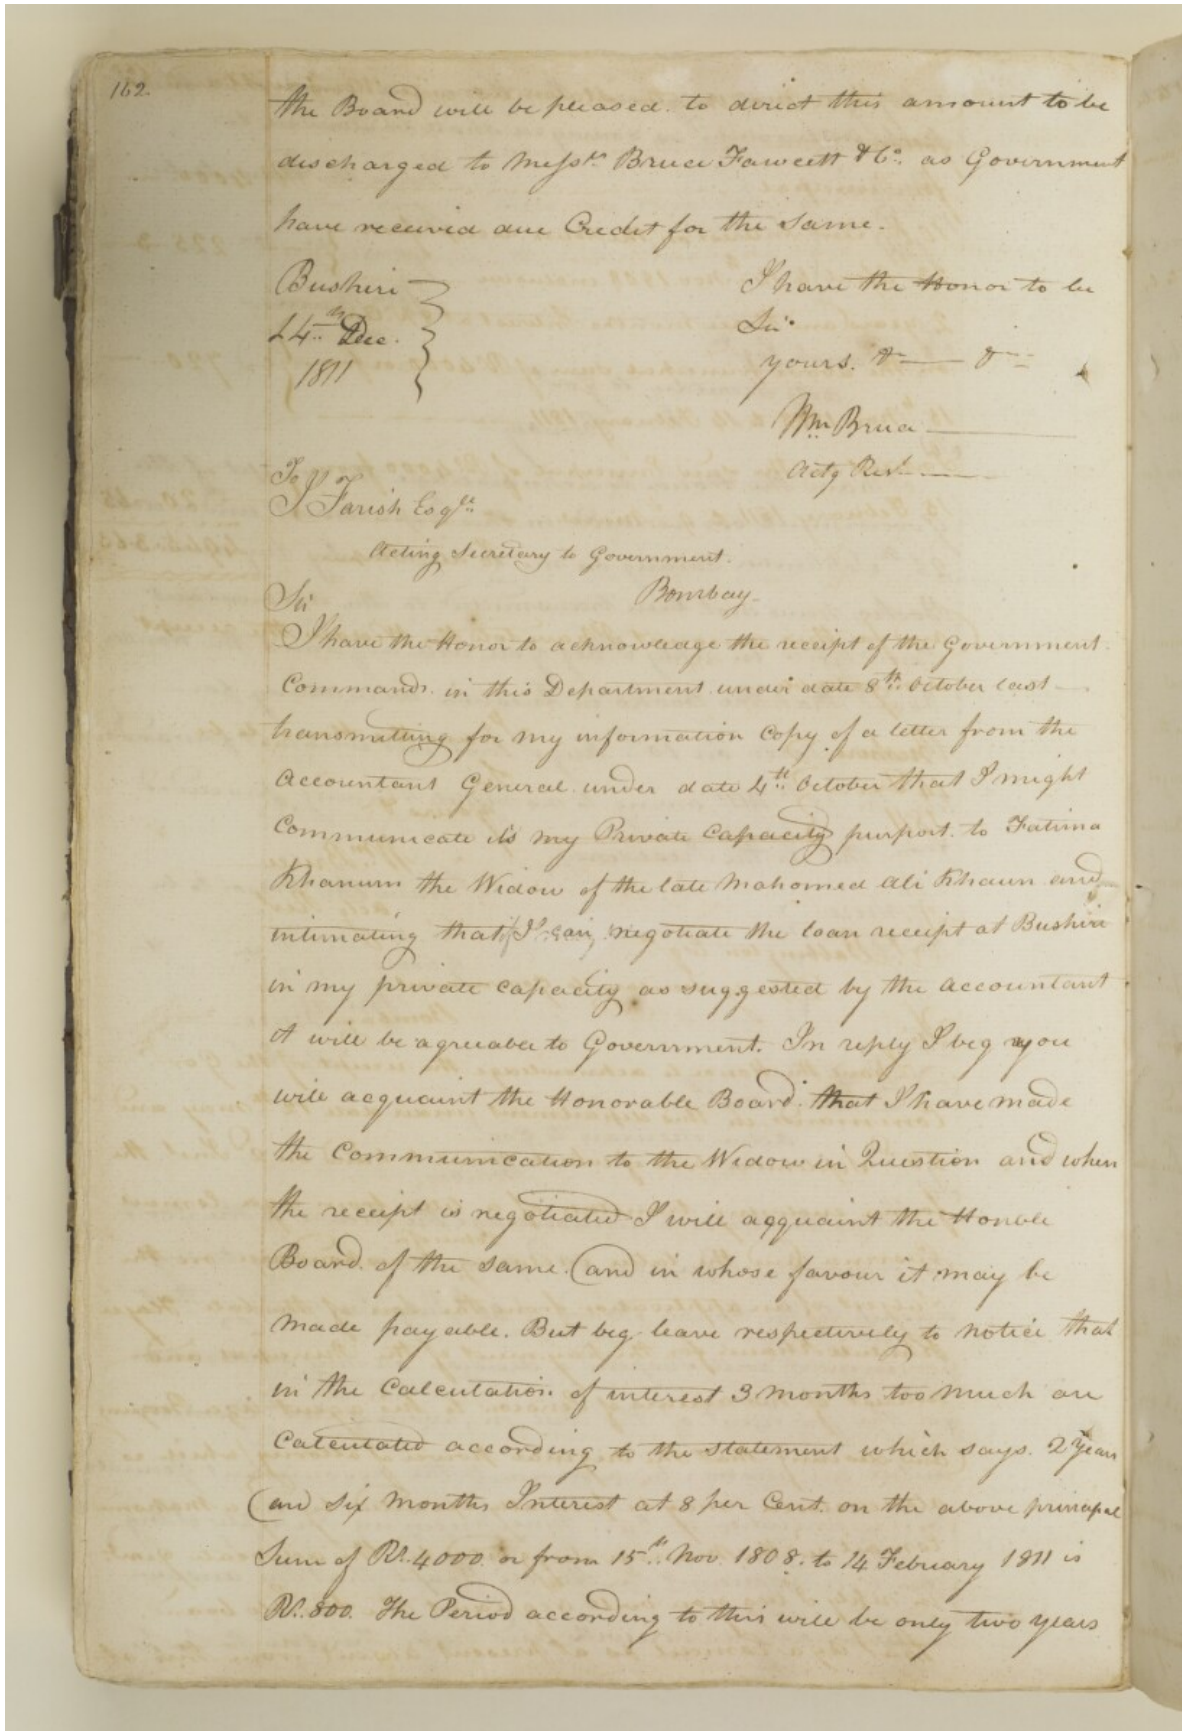 162.
the Board will be pleased to direct this amount to be
discharged to Messrs. Bruce Fawcett & Co. as Government
have received due Credit for the same.
Bushire
24th Dec.
1811
I have the Honor to be
Sir
yours. &— &—
Wm Bruce
Actg Rest.
To
J. Farish Esqre.
Acting Secretary to Government.
Bombay
Sir
I have the Honor to acknowledge the receipt of the Government
Commands in this Department under date 8th October last
transmitting for my information Copy of a letter from the
Accountant General under date 4th October that I might
Communicate its my Private Capacity purport to Fatima
Khanum the Widow of the late Mahomed Ali Khaun and
intimating that if I can negotiate the loan receipt at Bushire
in my private Capacity as suggested by the Accountant
it will be agreeable to Government. In reply I beg you
will acquaint the Honorable Board that I have made
the Communication to the Widow in Question and when
the receipt is negotiated I will acquaint the Honble
Board of the same and in whose favour it may be
made payable. But beg leave respectively to notice that
in the Calculation of interest 3 months too much are
Calculated according to the statement which says. 2 Years
and Six Months Interest at 8 per Cent. on the above principal
Sum of Rs. 4000 or from 15th Nov 1808. to 14 February 1811 is
Rs. 800. The Period according to this will be only two years